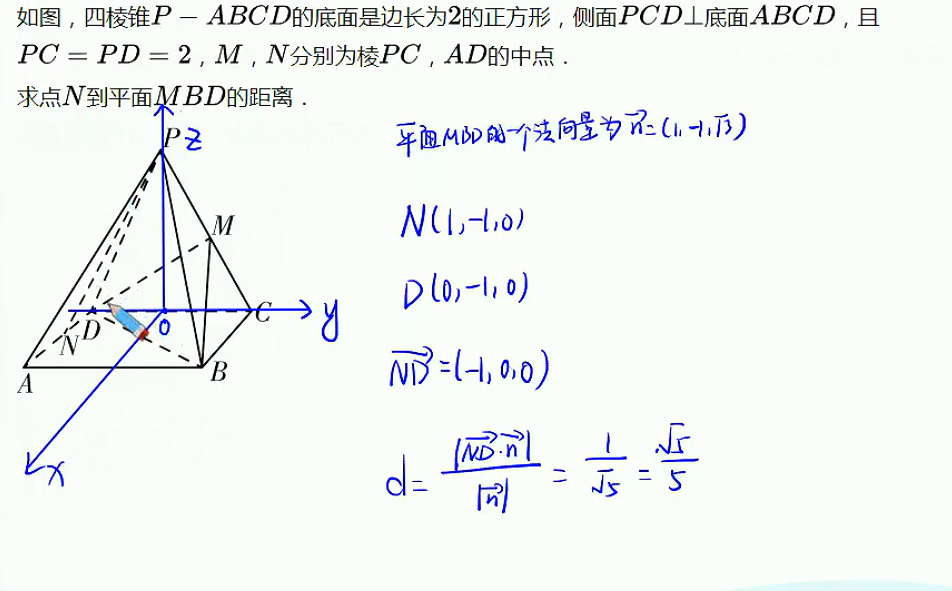 如图，四棱锥P-ABCD的底面是边长为2的正方形，侧面PCD⊥底面ABCD，且
PC=PD=2，M，N分别为棱PC，AD的中点．
求点N到平面MBD的距离．
平面MBD的一个法向量为n⃗=(1,-1,√3)
P z
M
N(1,-1,0)
D(0,-1,0)
N D O C y
A B
ND⃗=(-1,0,0)
x
d=|ND⃗·n⃗|/|n⃗|=1/√5=√5/5